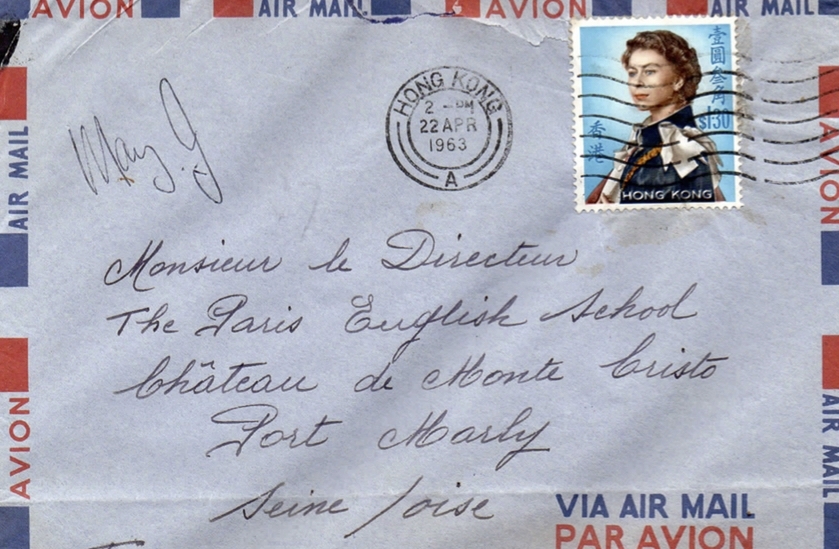 AVION AIR MAIL AVION AIR MAIL
HONG KONG
2 - PM
22 APR
1963
A
壹圓叁角
$1.30
香港
HONG KONG
AIR MAIL
AVION
AVION
AIR MAIL
Monsieur le Directeur
The Paris English School
Château de Monte Cristo
Port Marly
Seine / oise
VIA AIR MAIL
PAR AVION